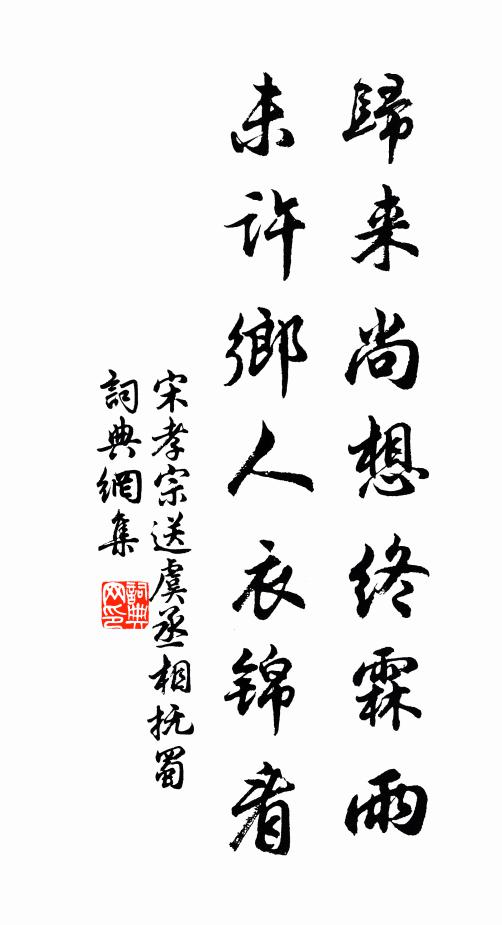 歸来尚想終霖雨
未許鄉人衣錦看
宋孝宗送虞丞相抚蜀
詞典網集
詞典网印